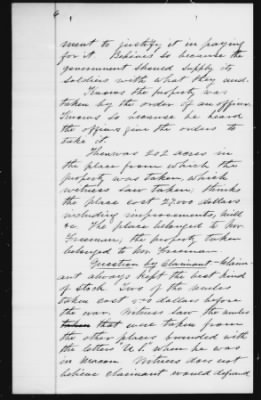 ment to justify it in paying
for it. Believes so because the
government should supply its
soldiers with what they need.
Knows the property was
taken by the order of an officer.
Knows so because he heard
the officers give the orders to
take it.
There was 202 acres in
the place from which this
property was taken, which
witness saw taken; thinks
the place cost 27,000 dollars
including improvements, mill
&c. The place belonged to Mr.
Freeman; the property taken
belonged to Mr. Freeman.
Question by Claimant - Claim
ant always kept the best kind
of stock. Two of the mules
taken cost 500 dollars before
the war. Witness saw the mules
taken that were taken from
the other places branded with
the letters "U.S." when he was
in Macon. Witness does not
believe claimant would defraud